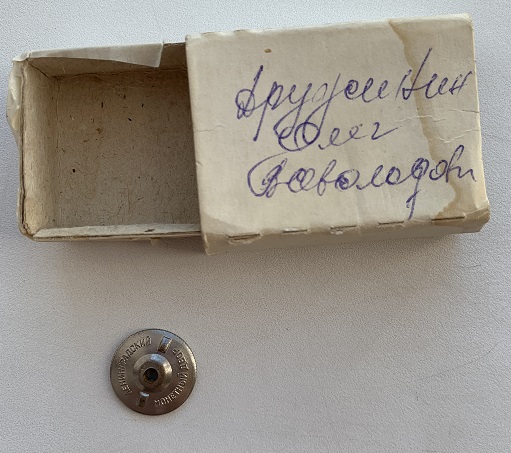 Дружинин
Олег
Всеволодович
ЛЕНИНГРАДСКИЙ
МОНЕТНЫЙ ДВОР